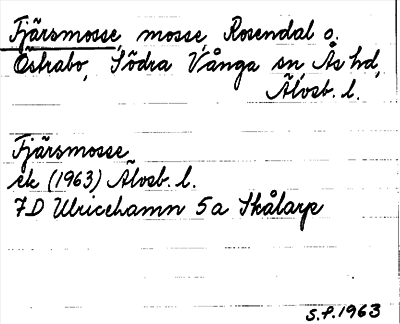 Fjärsmosse, mosse, Rosendal o.
Östrabo, Södra Vånga sn, Ås hd,
Älvsb. l.
Fjärsmosse
ek (1963) Älvsb. l.
7D Ulricehamn 5a Skålarp
S.P. 1963